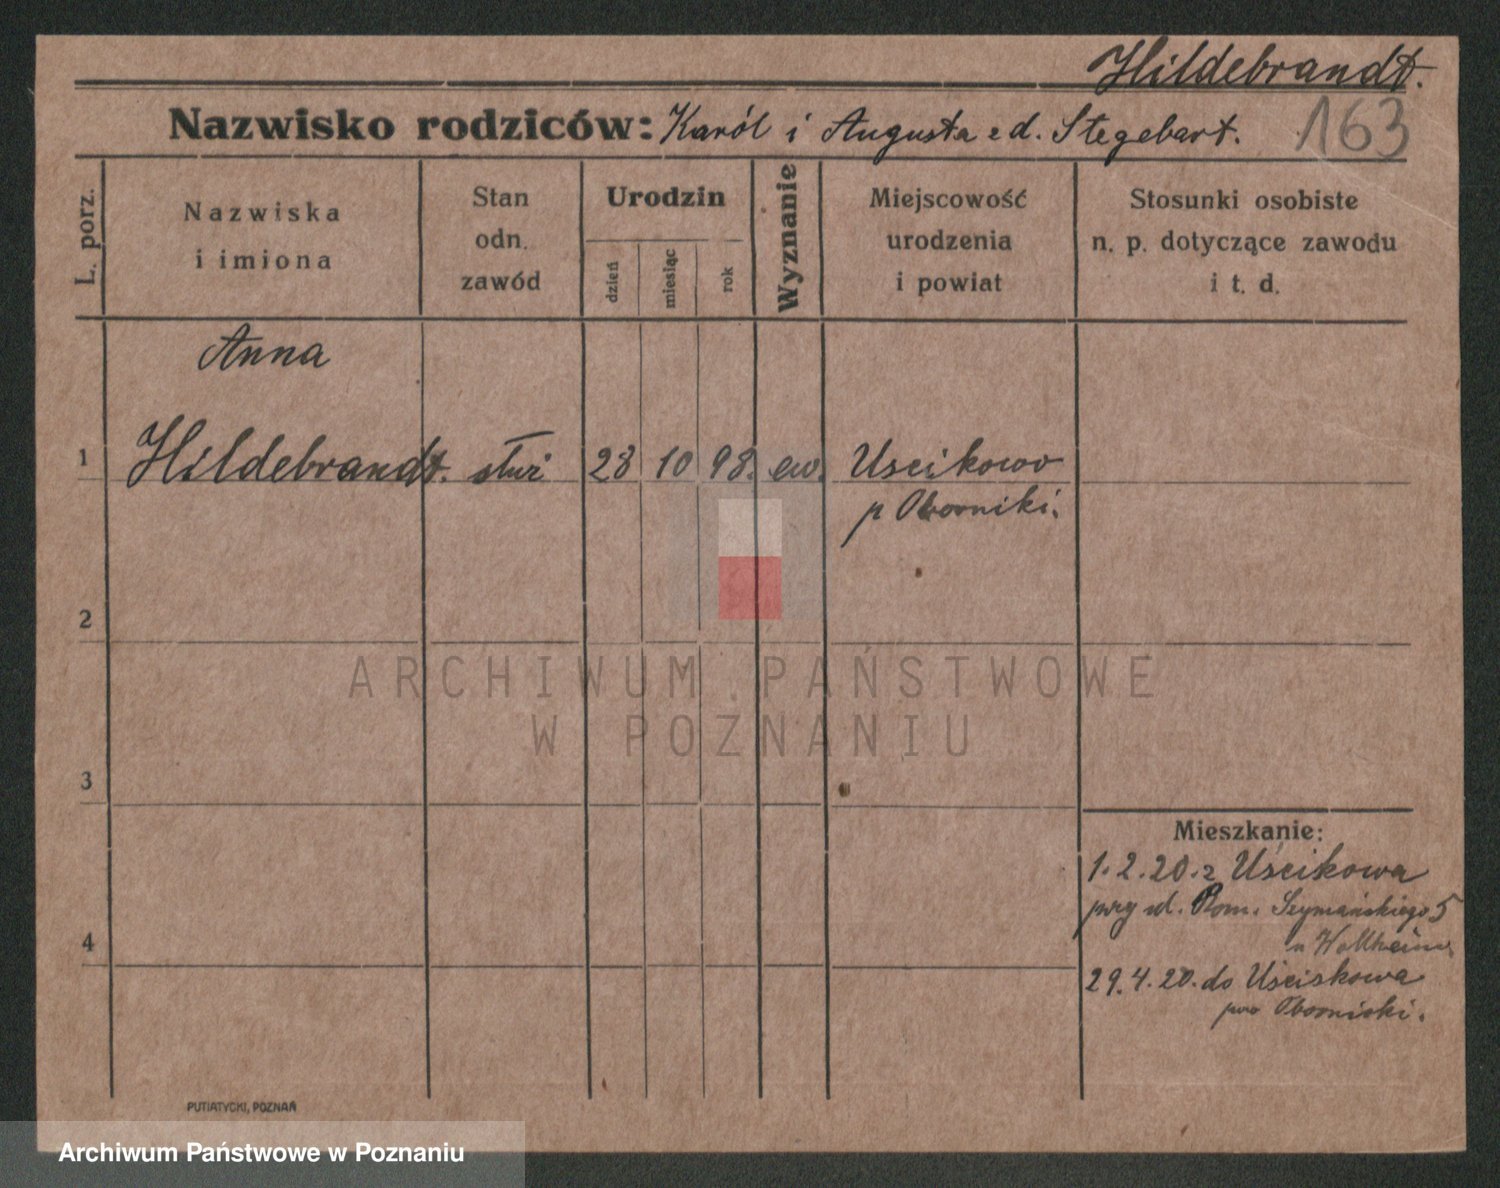 Hildebrandt.
Nazwisko rodziców: Karól i Augusta z d. Stegebart.
163
L. porz.
Nazwiska
i imiona
Stan
odn.
zawód
Urodzin
dzień
miesiąc
rok
Wyznanie
Miejscowość
urodzenia
i powiat
Stosunki osobiste
n. p. dotyczące zawodu
i t. d.
Anna
1 Hildebrandt. służ 28 10 98. ew. Uscikowo
p Oborniki.
2
3
4
Mieszkanie:
1.2.20. z Uścikowa
przy ul. Rom. Szymańskiego 5
u Wollheim
29.4.20. do Uściskowa
pow Oborniski.
PUTIATYCKI, POZNAŃ
ARCHIWUM PAŃSTWOWE
W POZNANIU
Archiwum Państwowe w Poznaniu